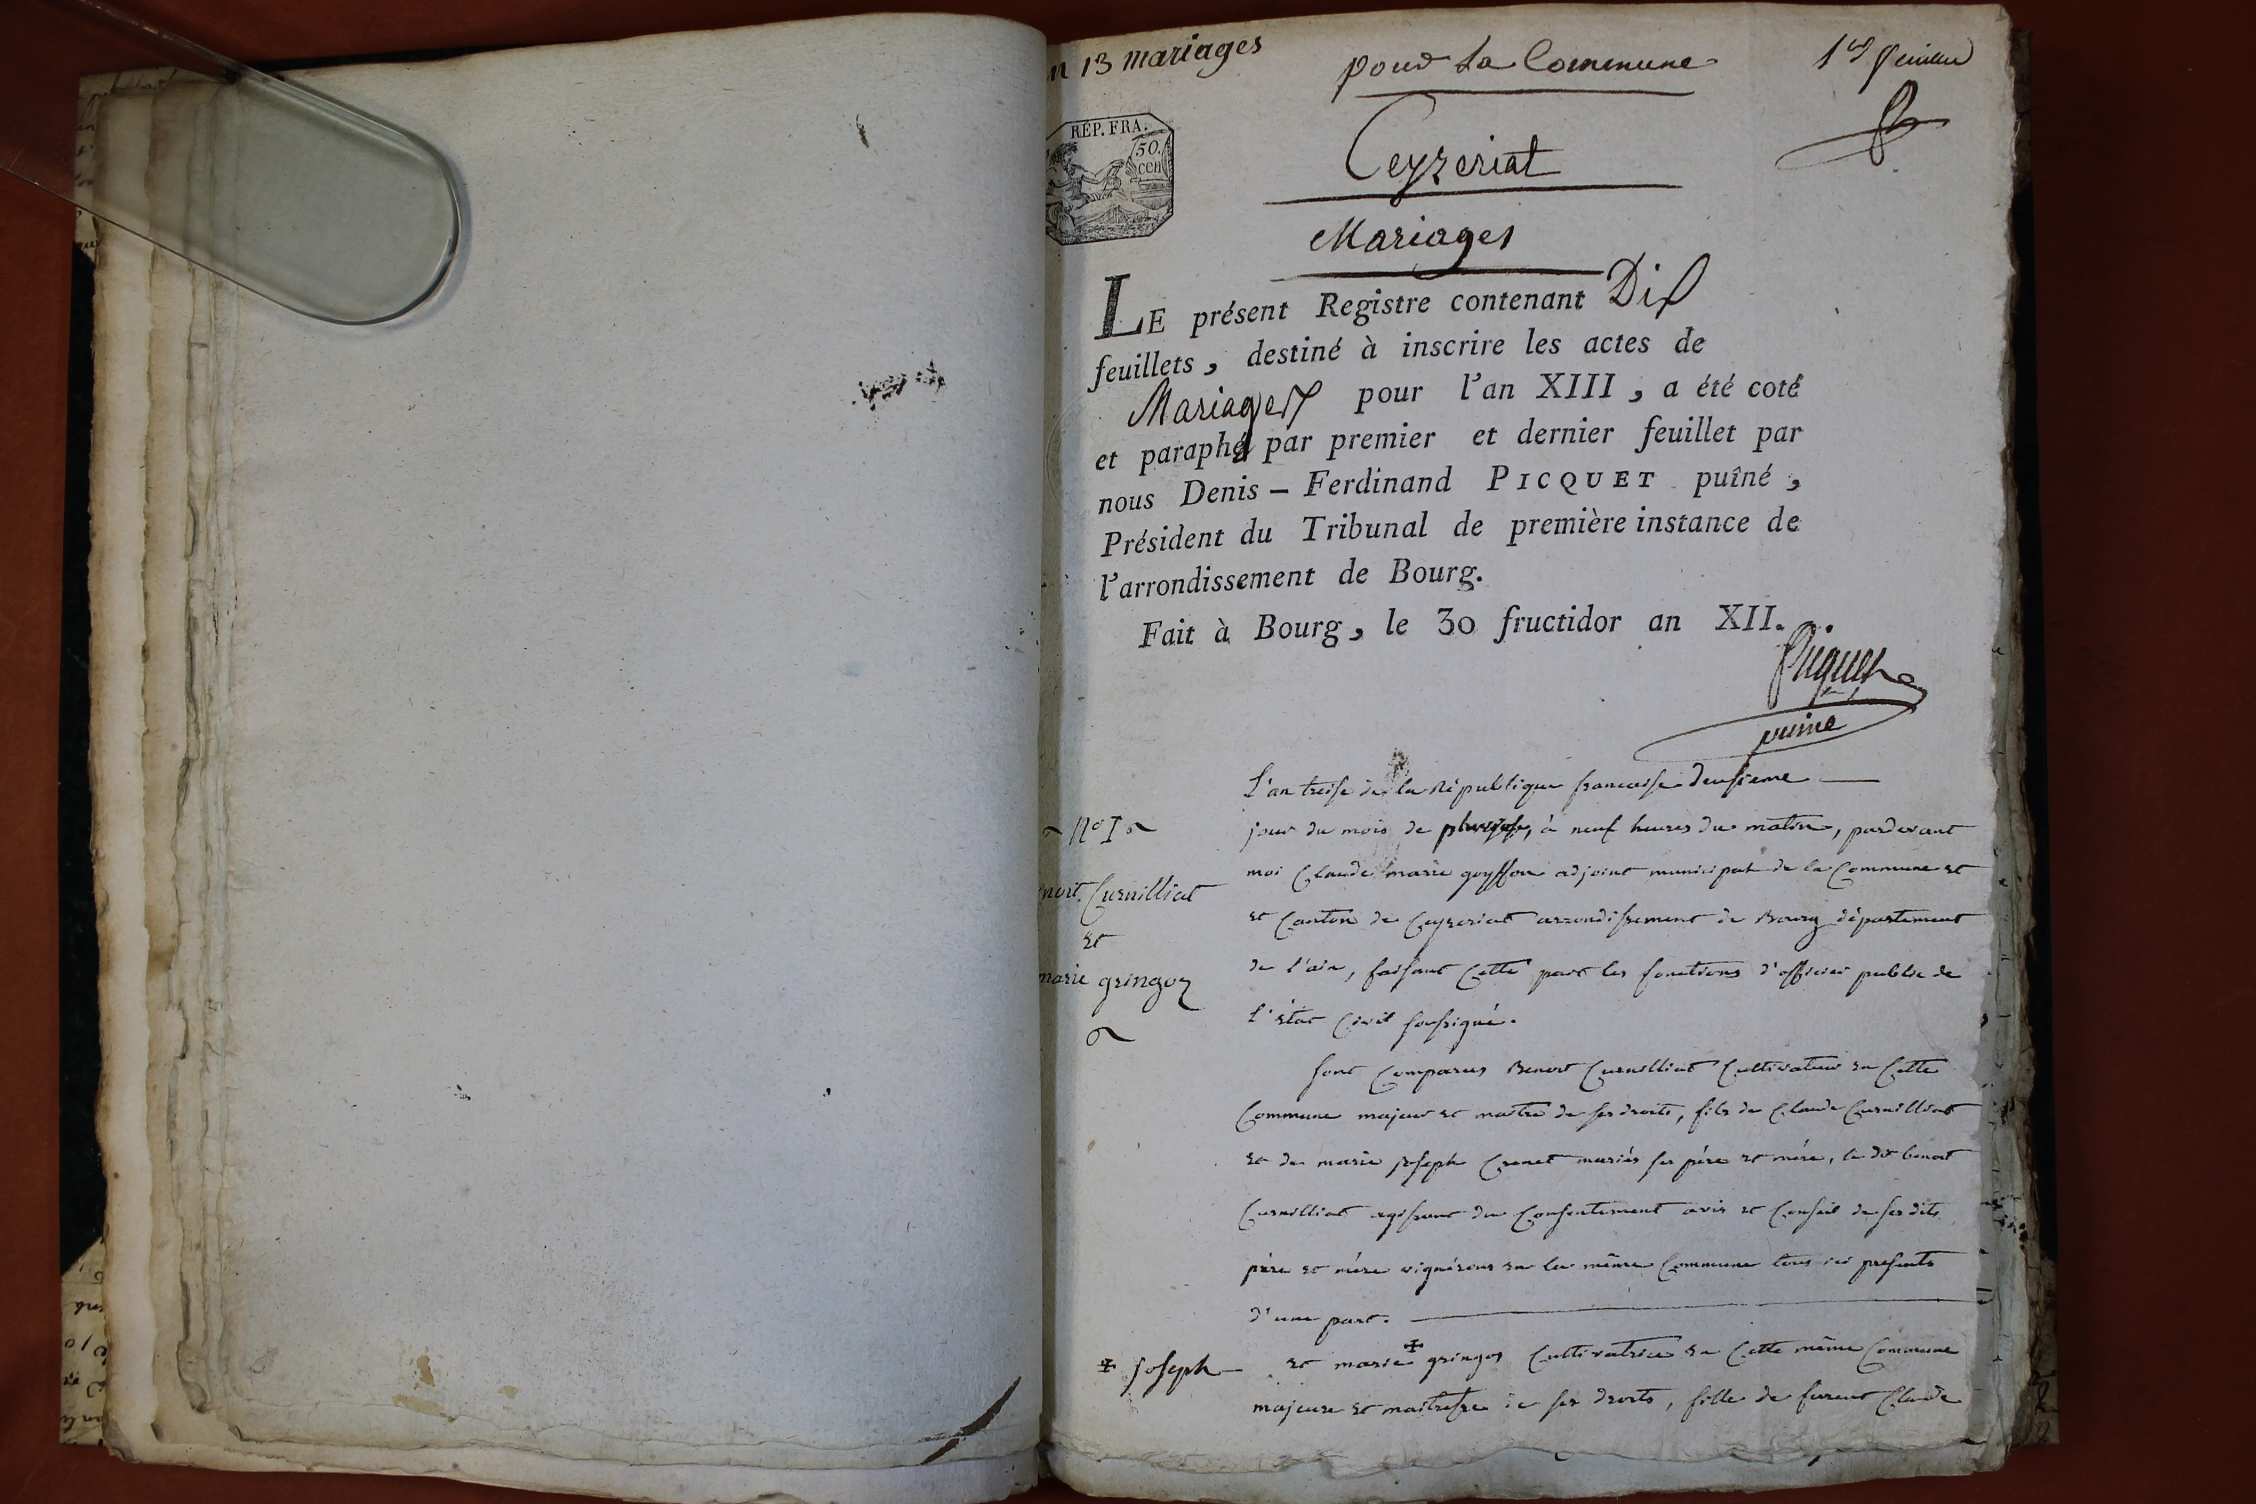 an 13 mariages
pour La Commune
1er feuillet
REP. FRA.
50.
cen
Ceyzeriat
Mariages
LE présent Registre contenant Dix
feuillets, destiné à inscrire les actes de
Mariages pour l'an XIII, a été coté
et paraphé par premier et dernier feuillet par
nous Denis-Ferdinand PICQUET puîné,
Président du Tribunal de première instance de
l'arrondissement de Bourg.
Fait à Bourg, le 30 fructidor an XII.
Picquet
puiné
N° 1
noit Curnilliat
et
marie gringoz
L'an treise de la République francaise deusieme
jour du mois de pluviose, à neuf heures du matin, pardevant
moi Claude marie goyffon adjoint municipal de la Commune et
et Canton de Ceyzeriat arrondissement de Bourg département
de l'ain, faisant Cette part les fonctions d'officier public de
l'état Civil soussigné.
sont Comparus Benoit Curnilliat Cultivateur en Cette
Commune majeur et maitre de ses droits, fils de Claude Curnilliat
et de marie joseph Crenet mariés ses père et mère, le dit benoit
Curnilliat agissant du Consentement avis et Conseil de ses dits
père et mère vignérons en la même Commune tous ici presents
d'une part.
et marie + gringoz Cultivatrice en Cette même Commune
+ joseph
majeure et maitresse de ses droits, fille de Claude